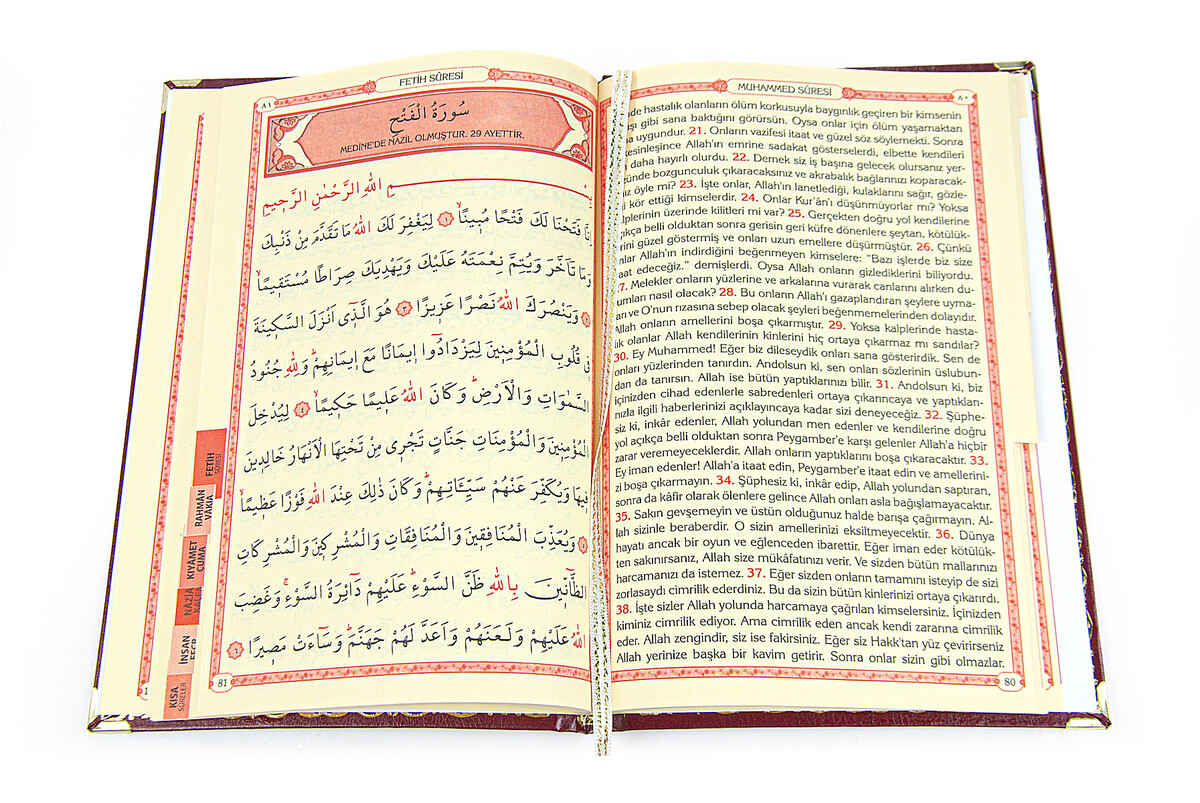 FETİH SÛRESİ
٨١
سُورَةُ الْفَتْحِ
MEDİNE'DE NAZİL OLMUŞTUR. 29 AYETTİR.
بِسْمِ اللهِ الرَّحْمٰنِ الرَّحِيمِ
اِنَّا فَتَحْنَا لَكَ فَتْحًا مُبِينًاۙ ﴿١﴾ لِيَغْفِرَ لَكَ اللهُ مَا تَقَدَّمَ مِنْ ذَنْبِكَ
وَمَا تَاَخَّرَ وَيُتِمَّ نِعْمَتَهُ عَلَيْكَ وَيَهْدِيَكَ صِرَاطًا مُسْتَقِيمًاۙ
﴿٢﴾ وَيَنْصُرَكَ اللهُ نَصْرًا عَزِيزًا ﴿٣﴾ هُوَ الَّذِي اَنْزَلَ السَّكِينَةَ
فِي قُلُوبِ الْمُؤْمِنِينَ لِيَزْدَادُٓوا اِيمَانًا مَعَ اِيمَانِهِمْۜ وَلِلّٰهِ جُنُودُ
السَّمٰوَاتِ وَالْاَرْضِۜ وَكَانَ اللهُ عَلِيمًا حَكِيمًاۙ ﴿٤﴾ لِيُدْخِلَ
الْمُؤْمِنِينَ وَالْمُؤْمِنَاتِ جَنَّاتٍ تَجْرِي مِنْ تَحْتِهَا الْاَنْهَارُ خَالِدِينَ
فِيهَا وَيُكَفِّرَ عَنْهُمْ سَيِّـَٔاتِهِمْۜ وَكَانَ ذٰلِكَ عِنْدَ اللهِ فَوْزًا عَظِيمًاۙ
﴿٥﴾ وَيُعَذِّبَ الْمُنَافِقِينَ وَالْمُنَافِقَاتِ وَالْمُشْرِكِينَ وَالْمُشْرِكَاتِ
الظَّٓانِّينَ بِاللهِ ظَنَّ السَّوْءِۜ عَلَيْهِمْ دَٓائِرَةُ السَّوْءِۚ وَغَضِبَ
اللهُ عَلَيْهِمْ وَلَعَنَهُمْ وَاَعَدَّ لَهُمْ جَهَنَّمَۜ وَسَٓاءَتْ مَصِيرًا ﴿٦﴾
81
FETİH
SÛRESİ
RAHMÂN
VÂKIA
KIYÂMET
CUMA
NÂZİÂ
İNSAN
KISA
SÛRELER
1
MUHAMMED SÛRESİ
٨٠
de hastalık olanların ölüm korkusuyla baygınlık geçiren bir kimsenin
şı gibi sana baktığını görürsün. Oysa onlar için ölüm yaşamaktan
a uygundur. 21. Onların vazifesi itaat ve güzel söz söylemekti. Sonra
esinleşince Allah'ın emrine sadakat gösterselerdi, elbette kendileri
daha hayırlı olurdu. 22. Demek siz iş başına gelecek olursanız yer-
ünde bozgunculuk çıkaracaksınız ve akrabalık bağlarınızı koparacak-
ız öyle mi? 23. İşte onlar, Allah'ın lanetlediği, kulaklarını sağır, gözle-
i kör ettiği kimselerdir. 24. Onlar Kur'ân'ı düşünmüyorlar mı? Yoksa
alplerinin üzerinde kilitleri mi var? 25. Gerçekten doğru yol kendilerine
çıkça belli olduktan sonra gerisin geri küfre dönenlere şeytan, kötülük-
rini güzel göstermiş ve onları uzun emellere düşürmüştür. 26. Çünkü
nlar Allah'ın indirdiğini beğenmeyen kimselere: "Bazı işlerde biz size
aat edeceğiz." demişlerdi. Oysa Allah onların gizlediklerini biliyordu.
27. Melekler onların yüzlerine ve arkalarına vurarak canlarını alırken du-
umları nasıl olacak? 28. Bu onların Allah'ı gazaplandıran şeylere uyma-
arı ve O'nun rızasına sebep olacak şeyleri beğenmemelerinden dolayıdır.
Allah onların amellerini boşa çıkarmıştır. 29. Yoksa kalplerinde hasta-
lık olanlar Allah kendilerinin kinlerini hiç ortaya çıkarmaz mı sandılar?
30. Ey Muhammed! Eğer biz dileseydik onları sana gösterirdik. Sen de
onları yüzlerinden tanırdın. Andolsun ki, sen onları sözlerinin üslubun-
dan da tanırsın. Allah ise bütün yaptıklarınızı bilir. 31. Andolsun ki, biz
içinizden cihad edenlerle sabredenleri ortaya çıkarıncaya ve yaptıkları-
nızla ilgili haberlerinizi açıklayıncaya kadar sizi deneyeceğiz. 32. Şüphe-
siz ki, inkâr edenler, Allah yolundan men edenler ve kendilerine doğru
yol açıkça belli olduktan sonra Peygamber'e karşı gelenler Allah'a hiçbir
zarar veremeyeceklerdir. Allah onların yaptıklarını boşa çıkaracaktır. 33.
Ey iman edenler! Allah'a itaat edin, Peygamber'e itaat edin ve amellerini-
zi boşa çıkarmayın. 34. Şüphesiz ki, inkâr edip, Allah yolundan saptıran,
sonra da kâfir olarak ölenlere gelince Allah onları asla bağışlamayacaktır.
35. Sakın gevşemeyin ve üstün olduğunuz halde barışa çağırmayın. Al-
lah sizinle beraberdir. O sizin amellerinizi eksiltmeyecektir. 36. Dünya
hayatı ancak bir oyun ve eğlenceden ibarettir. Eğer iman eder kötülük-
ten sakınırsanız, Allah size mükâfatınızı verir. Ve sizden bütün mallarınızı
harcamanızı da istemez. 37. Eğer sizden onların tamamını isteyip de sizi
zorlasaydı cimrilik ederdiniz. Bu da sizin bütün kinlerinizi ortaya çıkarırdı.
38. İşte sizler Allah yolunda harcamaya çağrılan kimselersiniz. İçinizden
kiminiz cimrilik ediyor. Ama cimrilik eden ancak kendi zararına cimrilik
eder. Allah zengindir, siz ise fakirsiniz. Eğer siz Hakk'tan yüz çevirirseniz
Allah yerinize başka bir kavim getirir. Sonra onlar sizin gibi olmazlar.
80